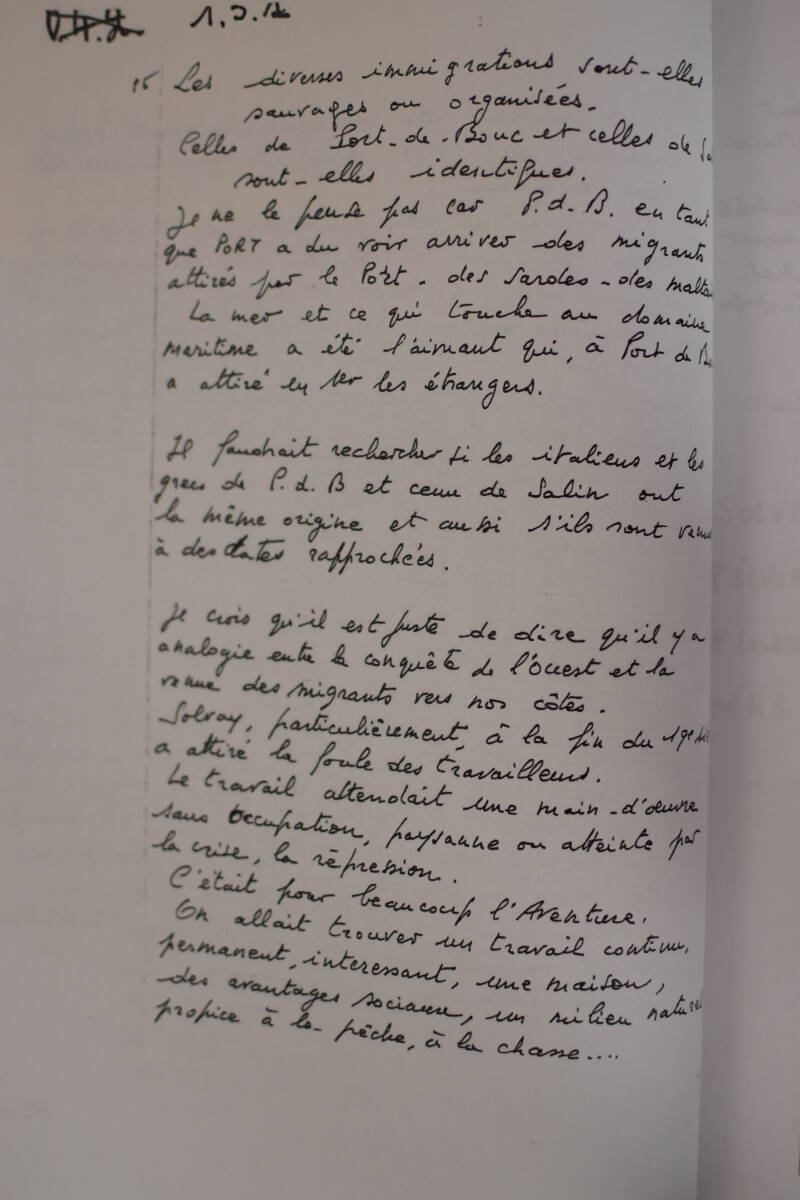 1.3.12
15 Les diverses immigrations sont-elles
sauvages ou organisées.
Celles de Port-de-Bouc et celles de
sont-elles identiques.
Je ne le pense pas car P.d.B. en tant
que PORT a du voir arriver des migrants
attirés par le Port. des sardes - des malta
La mer et ce qui touche au domaine
maritime a été l'aimant qui, à Port de B
a attiré en 1er les étrangers.
Il faudrait rechercher si les italiens et les
grecs de P.d.B et ceux de Salin ont
la même origine et aussi s'ils sont venu
à des dates rapprochées.
Je crois qu'il est juste de dire qu'il y a
analogie entre la conquête de l'Ouest et la
venue des migrants vers nos côtes.
Solvay, particulièrement, à la fin du 19e
a attiré la foule des travailleurs.
Le travail attendait une main-d'oeuvre
sans occupation, paysanne ou atteinte par
la crise, la répression.
C'était pour beaucoup l'Aventure.
On allait trouver un travail continu,
permanent, interessant, une maison,
des avantages sociaux, un milieu naturel
propice à la pêche, à la chasse....